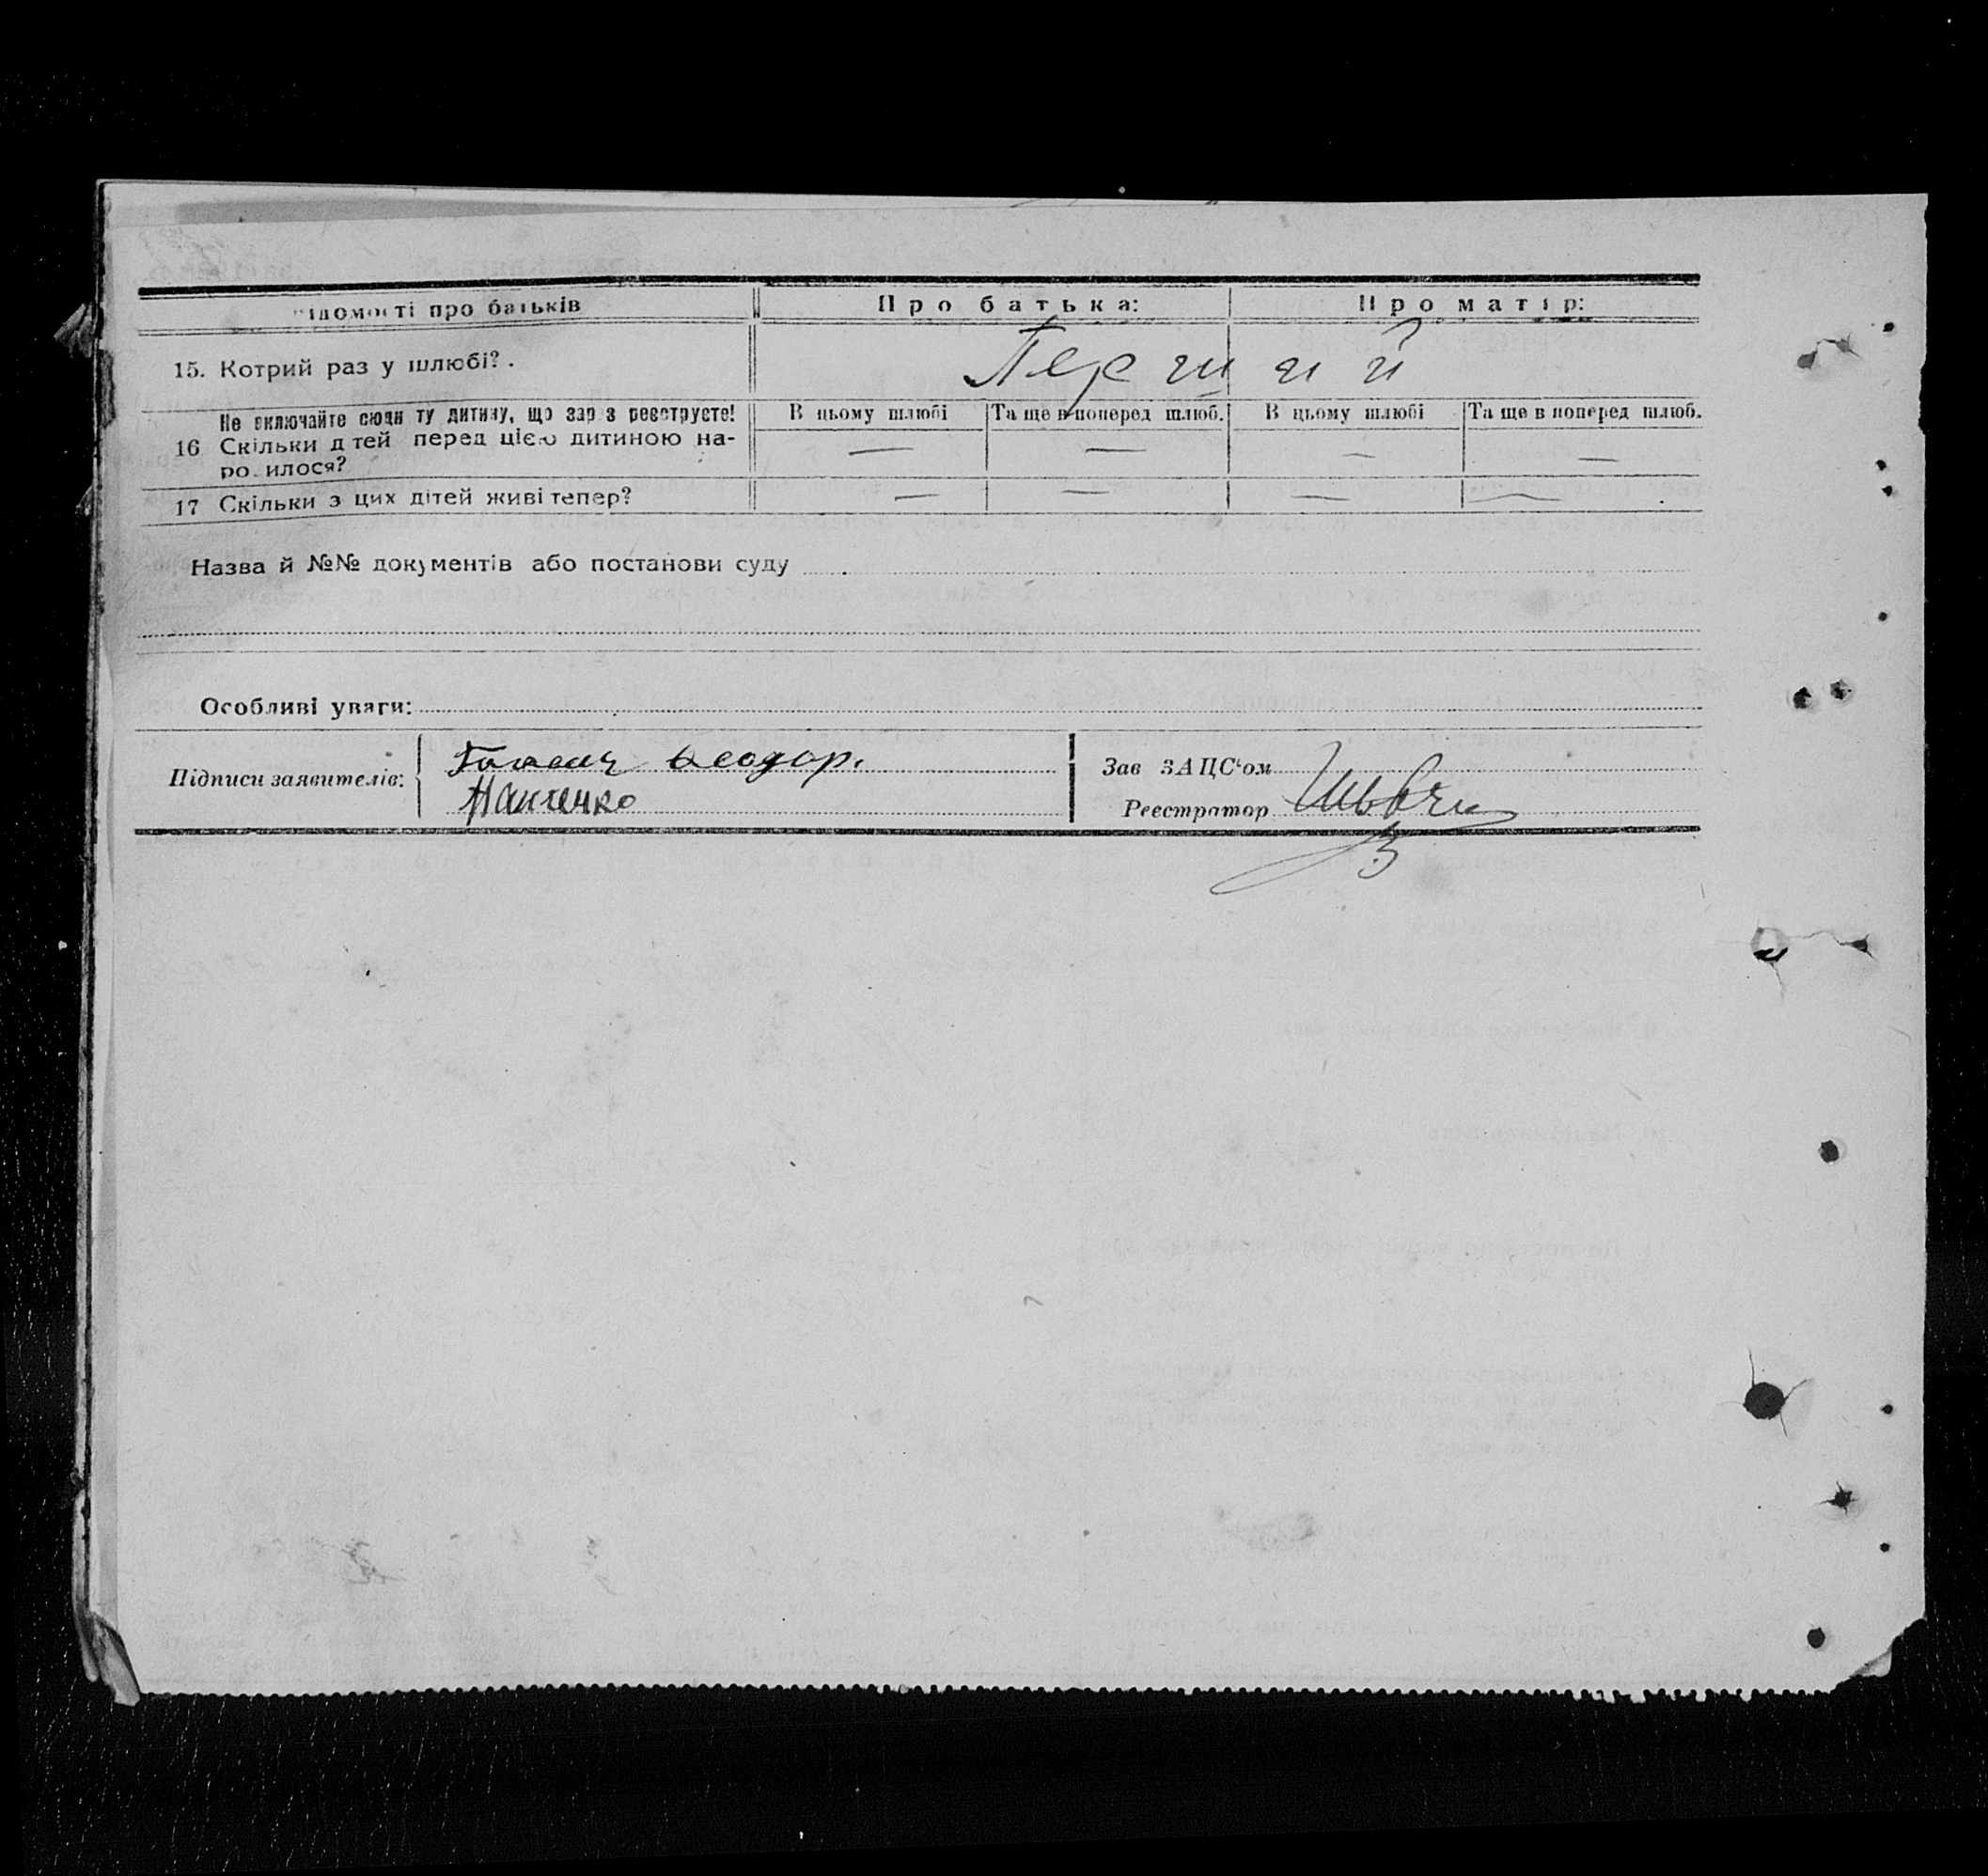 ідомості про батьків Про батька: Про матір:
15. Котрий раз у шлюбі? . Перший
Не включайте сюди ту дитину, що зар з реєструєте! В цьому шлюбі Та ще в поперед шлюб. В цьому шлюбі Та ще в поперед шлюб.
16 Скільки д тей перед цією дитиною на- — — — —
ро илося?
17 Скільки з цих дітей живі тепер? — — — —
Назва й №№ документів або постанови суду
Особливі уваги:
Підписи заявителів:
Зав ЗАЦС‘ом
Реєстратор